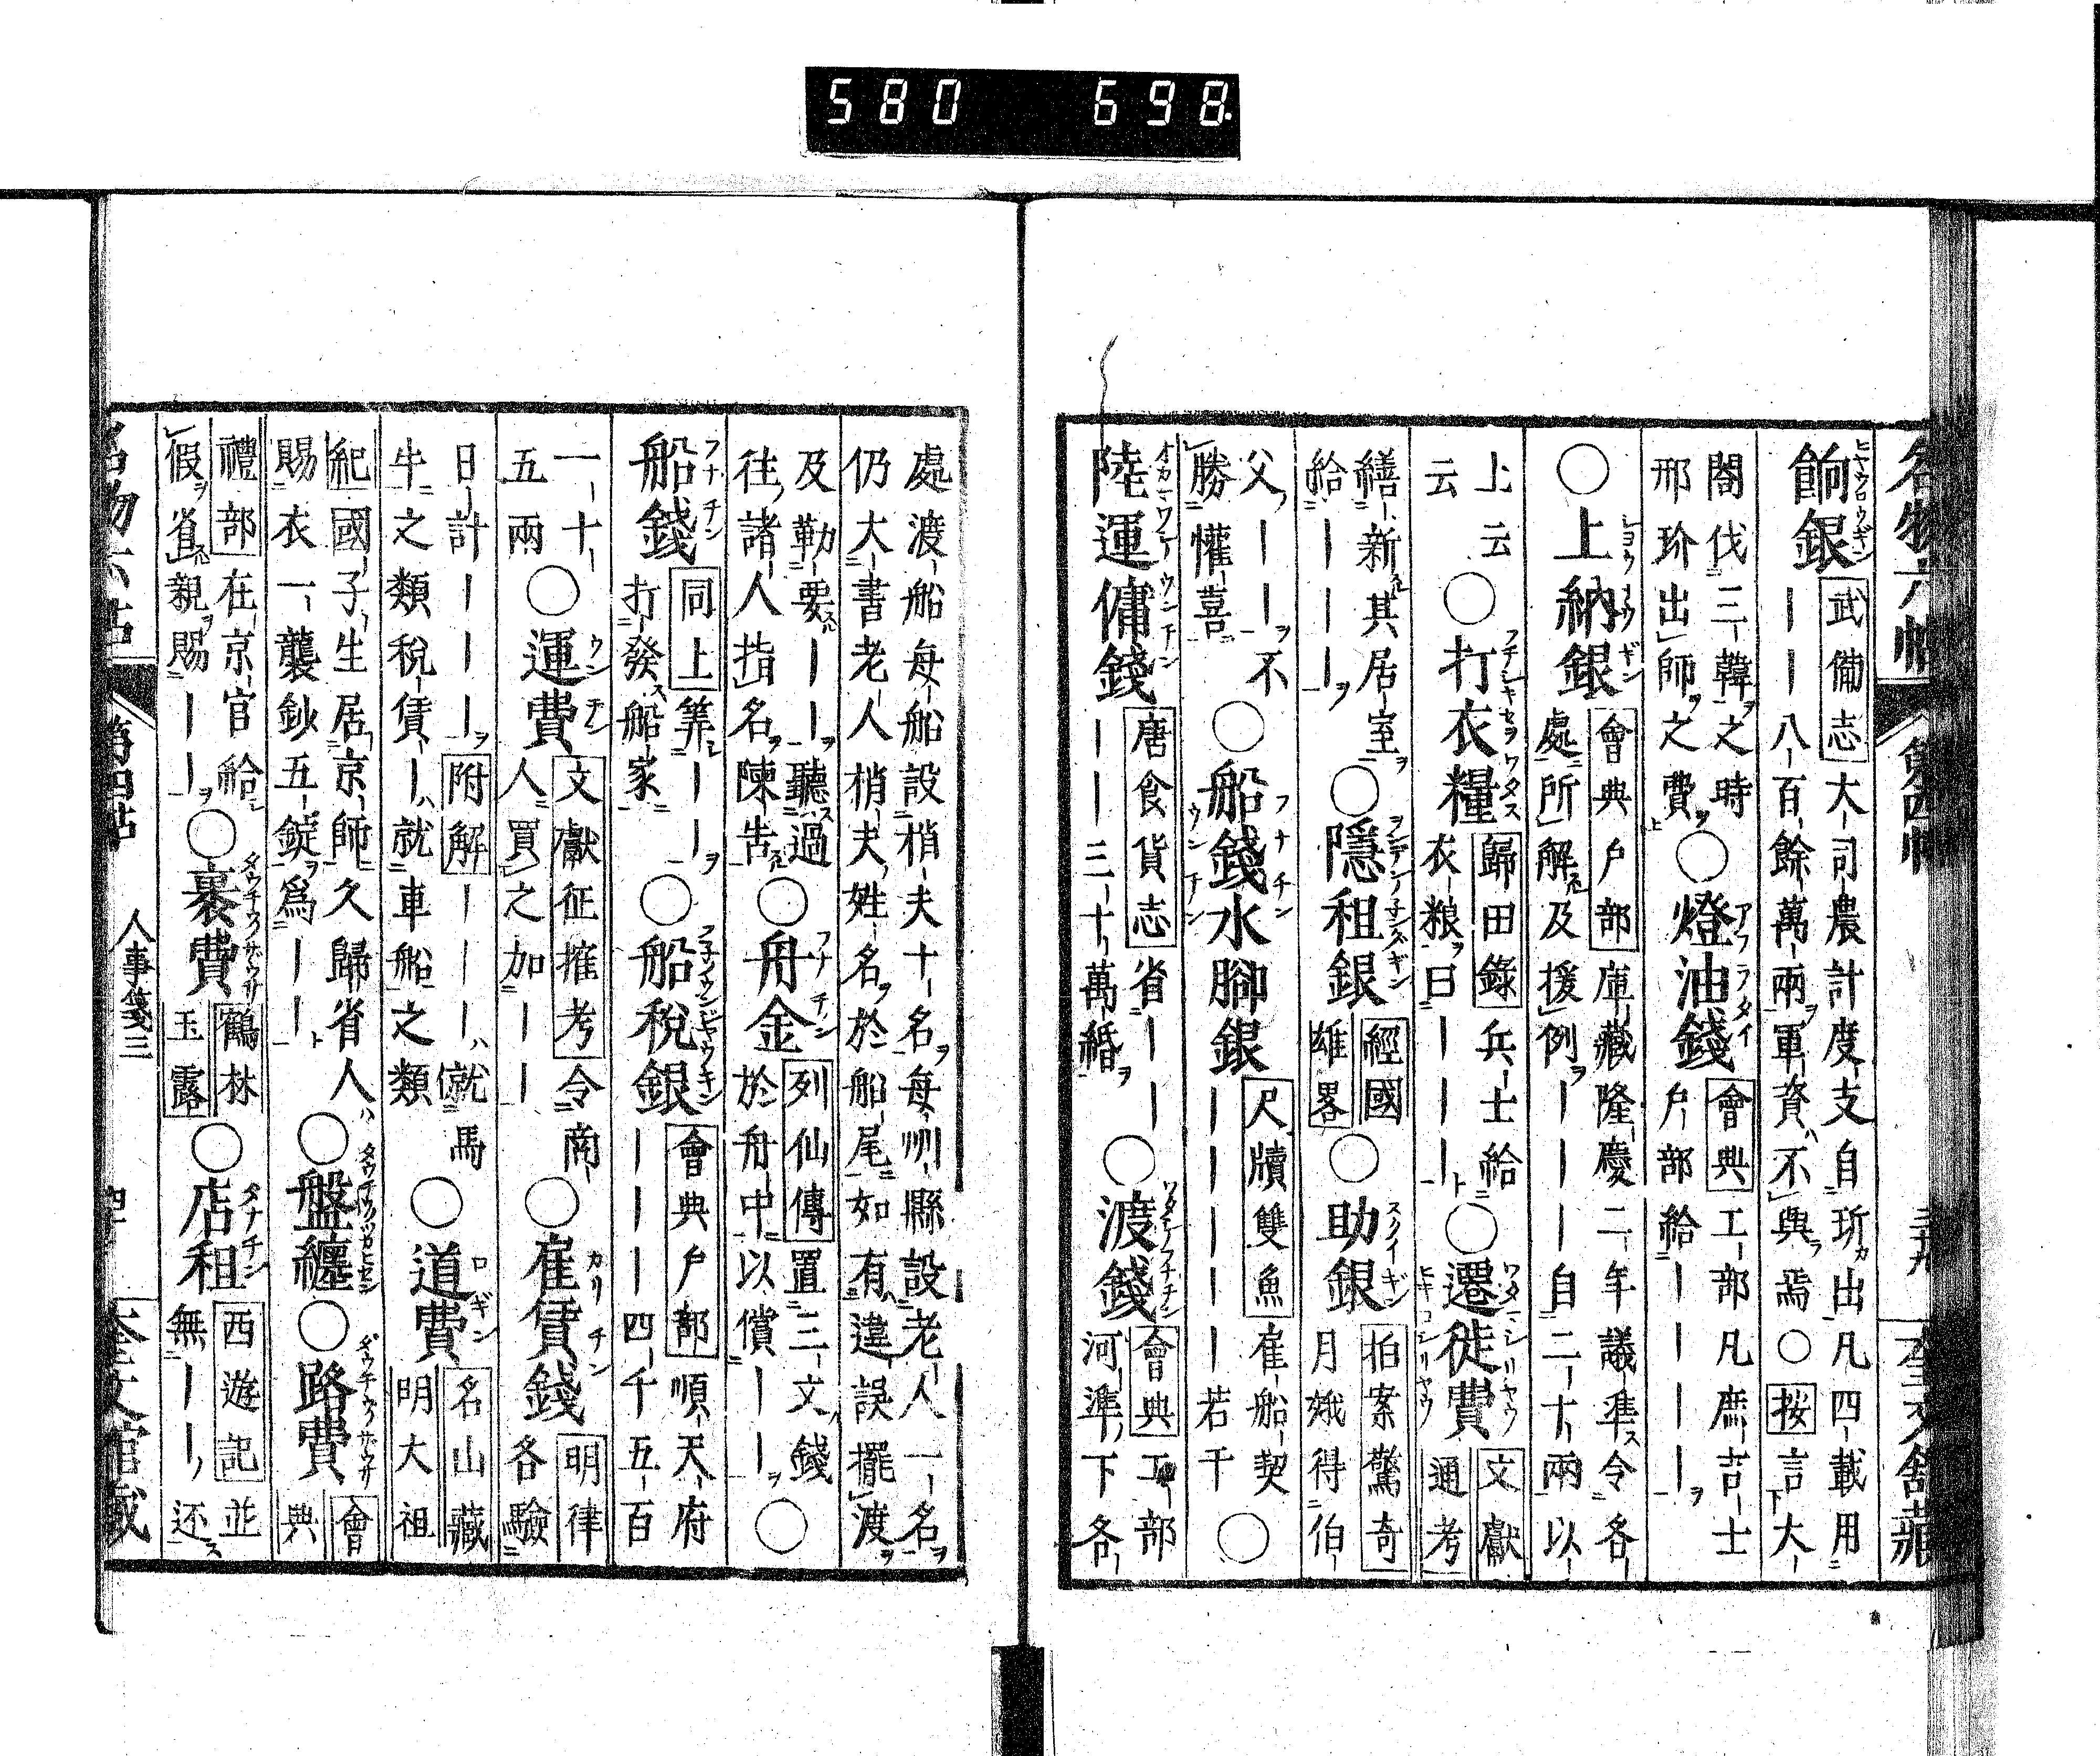 580 698
名物六帖 第四帖 三十九 奎文舘藏
餉銀 武備志 大司農計度支自所出凡四載用
――八百餘萬兩軍資不與焉○按言大
閤伐三韓之時
邢玠出師之費○燈油錢 會典 工部凡廕吉士
戶部給―――
○上納銀 會典戶部 庫藏隆慶二年議準令各
處所解及援例―――自二十兩以
上云云○打衣糧 歸田錄 兵士給
衣粮曰―――○遷徙費 文獻通考
繕新其居室
給――――○隱租銀 經國雄畧 ○助銀 拍案驚奇 月娥得伯
父―――不
勝懽喜○船錢水腳銀 尺牘雙魚 雇船契
―――――若干○
陸運傭錢 唐食貨志 省――
―――三十萬緡○渡錢 會典 工部
河準下各
處渡船每船設梢夫十名每州縣設老人一名
仍大書老人梢夫姓名於船尾如有違誤擺渡
及勒要――聽過
往諸人指名陳告○舟金 列仙傳 置三文錢
於舟中以償――○
船錢 同上 筭――
打發船家○船稅銀 會典戶部 順天府
―――四千五百
一十
五兩○運費 文獻征搉考 令商
人買之加――○雇賃錢 明律 各驗
日計―――附解 ―――僦馬
牛之類稅賃―就車船之類○道費 名山藏 明大祖
紀 國子生居京師久歸省人
賜衣一襲鈔五錠爲――○盤纏○路費 會典
禮部 在京官給
假省親賜――○裹費 鶴林玉露 ○店租 西遊記 並
無――还
名物六帖 第四帖 人事箋三 四十 奎文舘藏